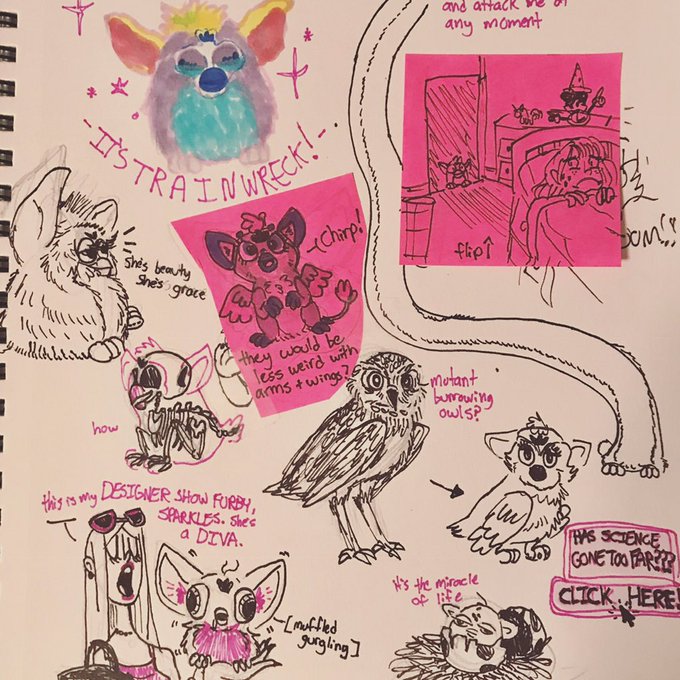 and attack me at
any moment
-IT'S TRAINWRECK!-
flip↑
OOM!!
She's beauty
She's grace
Chirp!
they would be
less weird with
arms + wings?
how
mutant
burrowing
owls?
this is my DESIGNER SHOW FURBY,
SPARKLES. She's
a DIVA.
HAS SCIENCE
GONE TOO FAR???
CLICK HERE!
it's the miracle
of life
[muffled
gurgling]